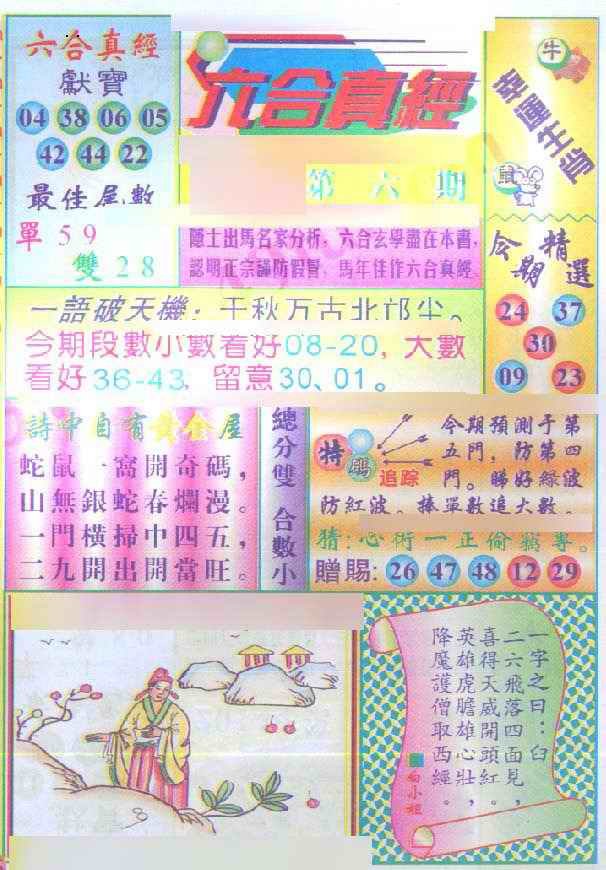 六合真經
獻寶
04 38 06 05
42 44 22
最佳尾數
單 59
雙 28
六合真經
第六期
隱士出馬名家分析，六合玄學盡在本書，
認明正宗謹防假冒，馬年佳作六合真經
牛
幸運生肖
鼠
今期精選
24 37
30
09 23
一語破天機：千秋万古北邙尘。
今期段數小數看好08-20，大數
看好36-43，留意30、01。
詩中自有黃金屋
蛇鼠一窩開奇碼，
山無銀蛇春爛漫。
一門橫掃中四五，
二九開出開當旺。
總分雙 合數小
特碼
追踪
今期預測于第
五門，防第四
門。睇好綠波
防紅波。捧單數追大數。
猜：心術一正偷竊專。
贈賜：26 47 48 12 29
一字之曰：臼
二六飛落四面見，
喜得天威開頭紅。
英雄虎膽雄心壯，
降魔護僧取西經。
白小姐